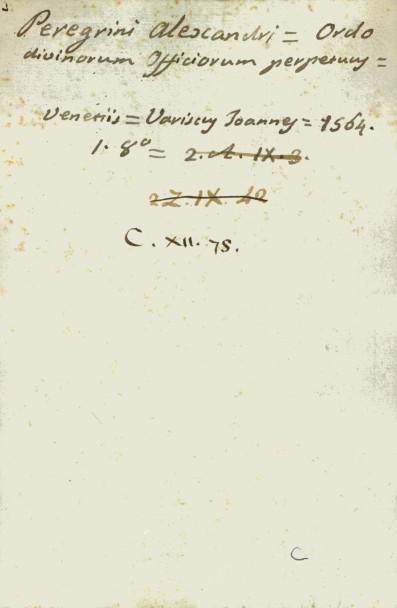 Peregrini Alexandri = Ordo
divinorum Officiorum perpetuus =
Venetiis = Variscus Joannes = 1564.
1. 8° = 2. A. IX. 3.
2 Z. IX. 42
C. XII. 75.
C